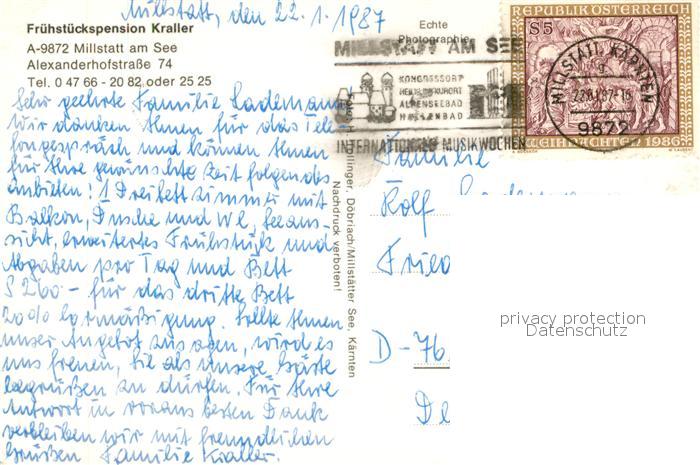 Millstatt, den 22.1.1987
Frühstückspension Kraller
A-9872 Millstatt am See
Alexanderhofstraße 74
Tel. 0 47 66 - 20 82 oder 25 25
Sehr geehrte Familie Lademann
wir danken Ihnen für das Tele-
fongespräch und können Ihnen
für Ihre gewünschte Zeit folgendes
anbieten! 1 Dreibettzimmer mit
Balkon, Dusche und WC, Seeaus-
sicht, erweitertes Frühstück und
Abgaben pro Tag und Bett
S 260 - für das dritte Bett
20% Ermäßigung. Sollte Ihnen
unser Angebot zusagen, wird es
uns freuen, Sie als unsere Gäste
begrüßen zu dürfen. Für Ihre
Antwort im voraus besten Dank
verbleiben wir mit freundlichen
Grüßen Familie Kraller.
Echte
Photographie
MILLSTATT AM SEE
KONGRESSORT
HEILKLIMAKURORT
ALPENSEEBAD
HALLENBAD
INTERNATIONALE MUSIKWOCHEN
REPUBLIK ÖSTERREICH
S 5
MILLSTATT, KÄRNTEN
22.01.87-16
9872
WEIHNACHTEN 1986
Döbriach/Millstätter See, Kärnten
Nachdruck verboten!
Familie
Rolf
Fried
D-76
De
privacy protection
Datenschutz